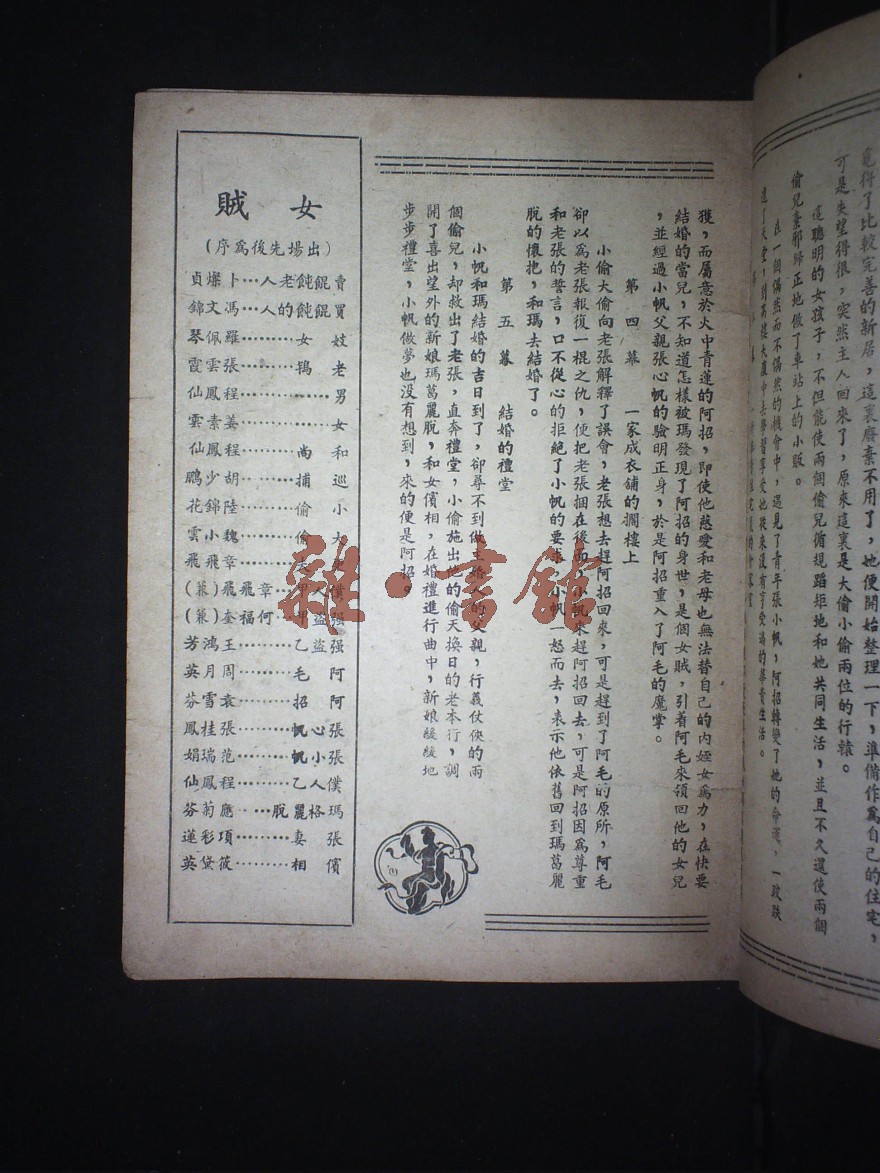 覓得了比較完善的新居，這裏廢棄不用了，她便開始整理一下，準備作爲自己的住宅，
可是失望得很，突然主人回來了，原來這裏是大偷小偷兩位的行轅。
這聰明的女孩子，不但能使兩個偷兒循規蹈矩地和她共同生活，並且不久還使兩個
偷兒棄邪歸正地做了車站上的小販。
在一個偶然而不偶然的機會中，遇見了青年張小帆，阿招轉變了她的命運，一跤跌
進了天堂，到高樓大廈中去學習享受她從來沒有享受過的華貴生活。
獲，而屬意於火中青蓮的阿招，即使他慈愛和老母也無法替自己的內姪女爲力，在快要
結婚的當兒，不知道怎樣被瑪發現了阿招的身世，是個女賊，引着阿毛來領回他的女兒
，並經過小帆父親張心帆的驗明正身，於是阿招重入了阿毛的魔掌。
第四幕　一家成衣舖的擱樓上
小偷大偷向老張解釋了誤會，老張想去趕阿招回來，可是趕到了阿毛的原所，阿毛
卻以爲老張報復一棍之仇，便把老張捆在後面，小帆來趕阿招回去，可是阿招因爲尊重
和老張的誓言，口不從心的拒絕了小帆的要求，小帆一怒而去，表示他依舊回到瑪葛麗
脫的懷抱，和瑪去結婚了。
第五幕　結婚的禮堂
小帆和瑪結婚的吉日到了，卻尋不到做主婚人的父親，行義仗俠的兩
個偷兒，却救出了老張，直奔禮堂，小偷施出他的偷天換日的老本行，調
開了喜出望外的新娘瑪葛麗脫，和女儐相，在婚禮進行曲中，新娘緩緩地
步步禮堂，小帆做夢也没有想到，來的便是阿招。
女賊
（出場先後爲序）
賣餛飩老人…卜燦貞
買餛飩的人…馮文錦
妓女………羅佩琴
老鴇………張雲霞
男………程鳳仙
女………姜素雲
和尚………程鳳仙
巡捕………胡少鵬
小偷………陸錦花
大偷………魏小雲
章飛飛
僕人甲…章飛飛（兼）
强盜甲…何福奎（兼）
强盜乙…王鴻芳
阿毛………周月英
阿招………袁雪芬
張心帆………張桂鳳
張小帆………范瑞娟
僕人乙………程鳳仙
瑪格麗脫…應菊芬
張妻………項彩蓮
儐相………筱黛英